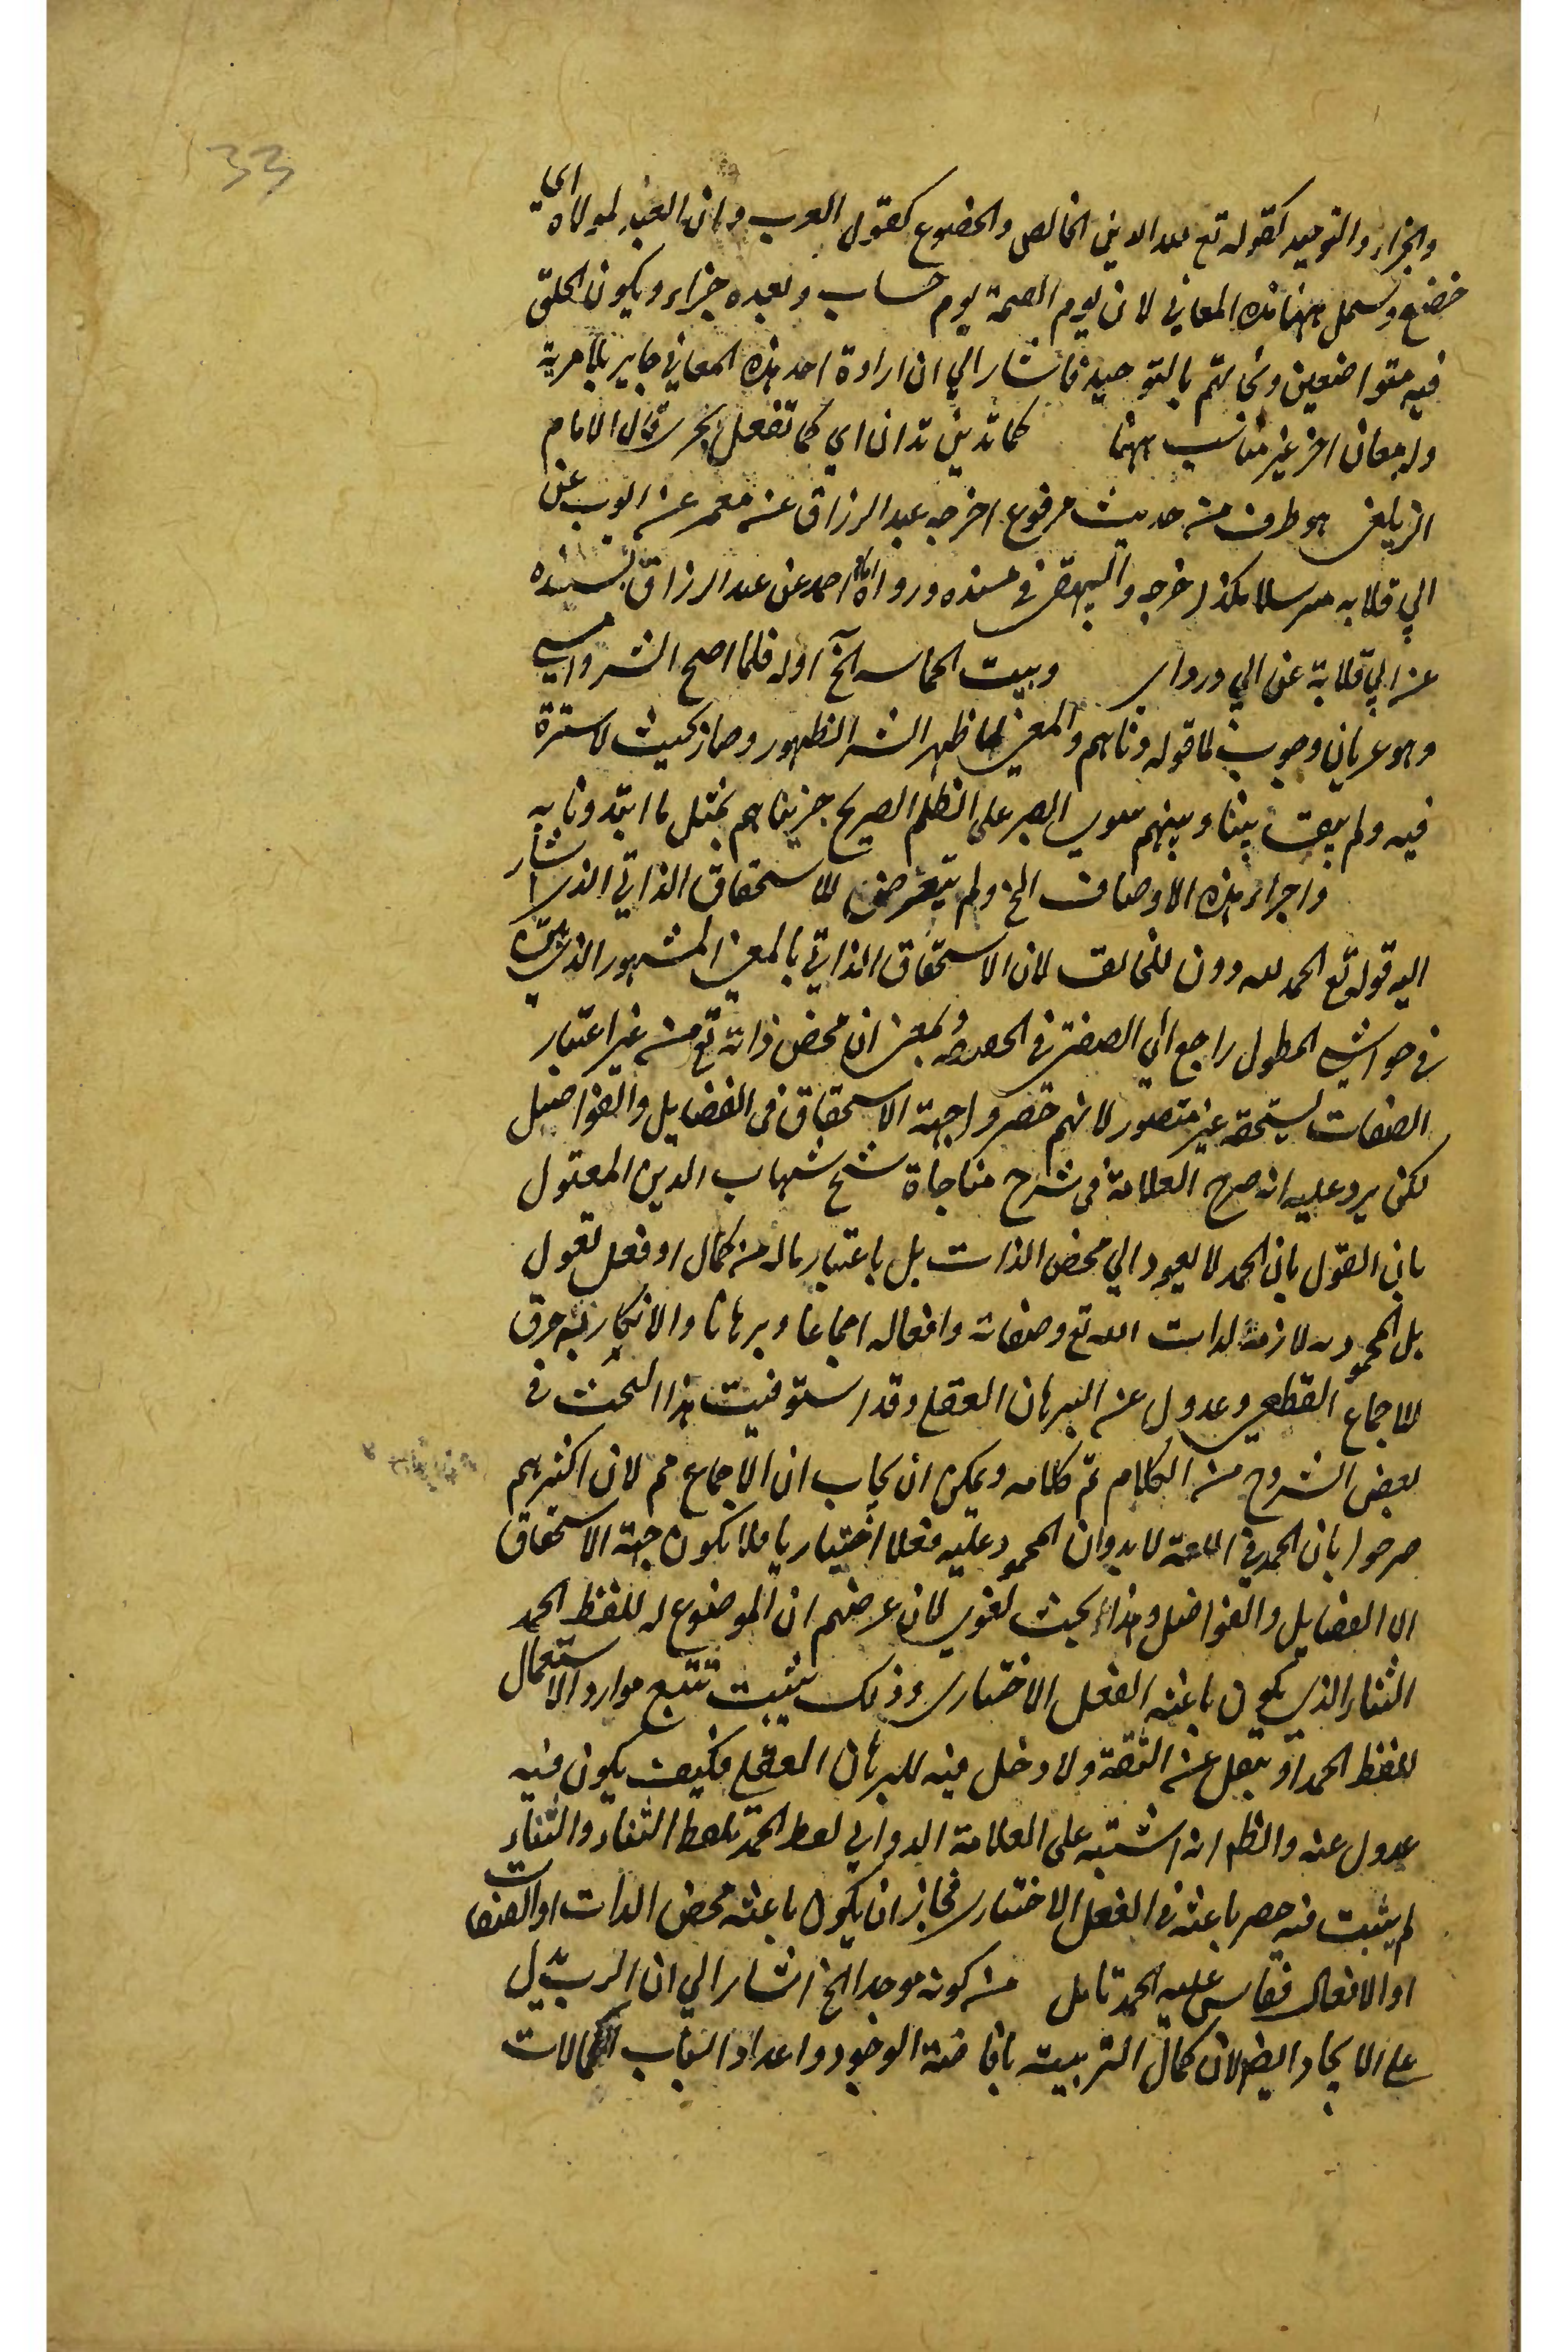 33
والجزاء والتوحيد كقوله تع لله الدين الخالص والخضوع كقول العرب دان العبد لمولاه اي
خضع ويحمل ههنا هذه المعاني لان يوم القيمة يوم حساب وبعده جزاء ويكون الخلق
فيه متواضعين ونجاتهم بالتوحيد فاشار الي ان ارادة احد هذه المعاني جايز بلا مرية
وله معان اخر غير مناسب ههنا كما تدين تدان اي كما تفعل تجز قال الامام
الزيلعي هو طرف من حديث مرفوع اخرجه عبد الرزاق عن معمر عن ايوب عن
ابي قلابه مرسلا هكذا اخرجه والبيهقي في مسنده ورواه احمد عن عبد الرزاق بسنده
عن ابي قلابة عن ابي دردا وبيت الحماسه الخ اوله فلما اصح الشر وامسي
وهو عريان وجواب لما قوله دناهم والمعني لما ظهر الشر الظهور وصار بحيث لا سترة
فيه ولم يبق بيننا وبينهم سوي الصبر على الظلم الصريح جزيناهم بمثل ما ابتدونا به
واجراء هذه الاوصاف الخ ولم يتعرض للاستحقاق الذاتي الذي اشار
اليه قوله تع الحمد لله دون للخالق لان الاستحقاق الذاتي بالمعني المشهور الذي
في حواشي المطول راجع الي الصفتي في الحقيقة وبمعني ان محض ذاته تع من غير اعتبار
الصفات يستحقه غير متصور لانهم حصروا جهة الاستحقاق في الفضايل والفواضل
لكن يرد عليه انه صرح العلامة في شرح مناجاة شيخ شهاب الدين المقتول
بان القول بان الحمد لا يعود الي محض الذات بل باعتبار ماله من كمال او فعل نقول
بل المحموديه لازمة لذات الله تع وصفاته وافعاله اجماعا وبرهانا والانكار فيه خرق
للاجماع القطعي وعدول عن البرهان العقلي وقد استوفيت هذا البحث في
بعض الشروح من الكلام تم كلامه ويمكن ان يجاب ان الاجماع مم لان اكثرهم
صرحوا بان الحمد في اللغة لا بد وان المحمود عليه فعلا اختياريا فلا يكون جهة الاستحقاق
الا الفضايل والفواضل وهذا بحث لغوي لان غرضهم ان الموضوع له للفظ الحمد
الثناء الذي يكون باعثه الفعل الاختياري وذلك يثبت تتبع موارد الاستعمال
للفظ الحمد او بنقل عن الثقة ولا دخل فيه للبرهان العقلي فكيف يكون فيه
عدول عنه والظم انه اشتبه على العلامة الدواني لفظ الحمد بلفظ الثناء والثناء
لم يثبت فيه حصر باعثه في الفعل الاختياري فجاز ان يكون باعثه محض الذات او الصفات
او الافعال فقاس عليه الحمد تامل من كونه موجدا الخ اشار الي ان الرب يدل
على الايجاد ايضا لان كمال التربيت بافاضة الوجود واعداد اسباب الكمالات